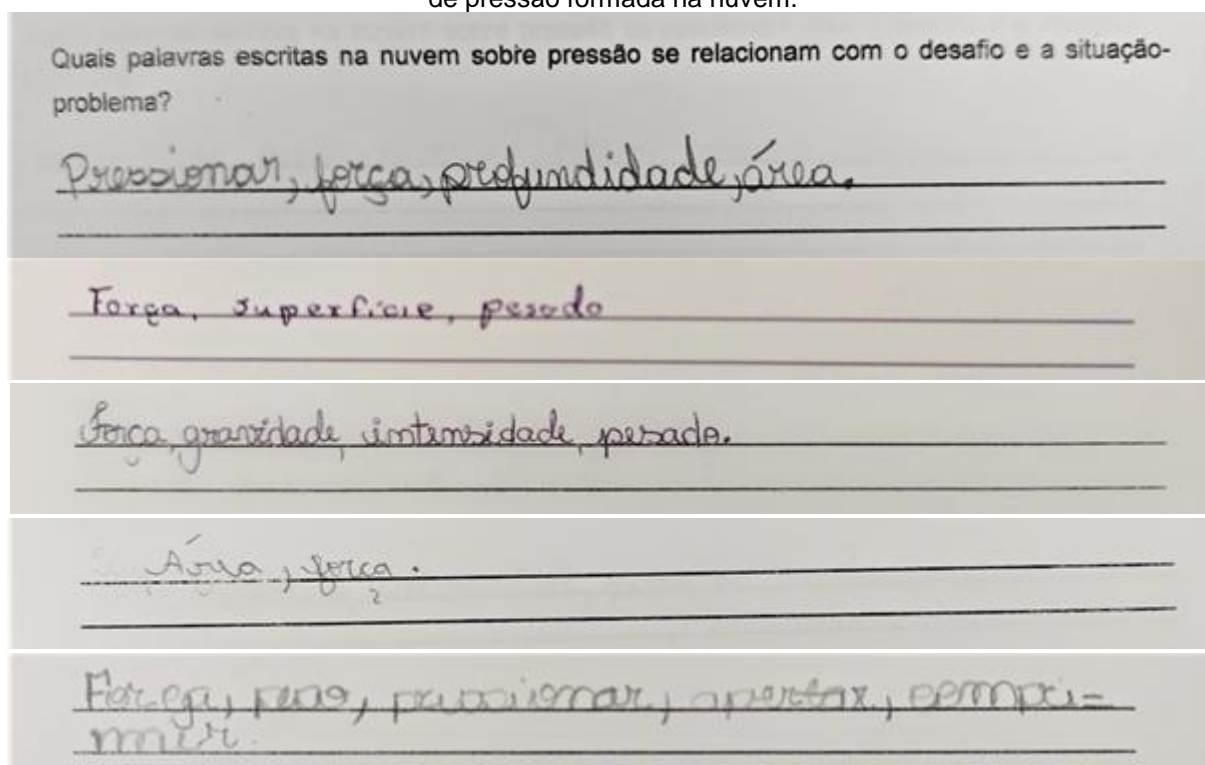 de pressão formada na nuvem.
Quais palavras escritas na nuvem sobre pressão se relacionam com o desafio e a situação-
problema?
Pressionar, força, profundidade, área.
Força, superficie, pesado
Força, gravidade, intensidade, pesado.
Área, força.
Força, peso, pressionar, apertar, compri-
mir.